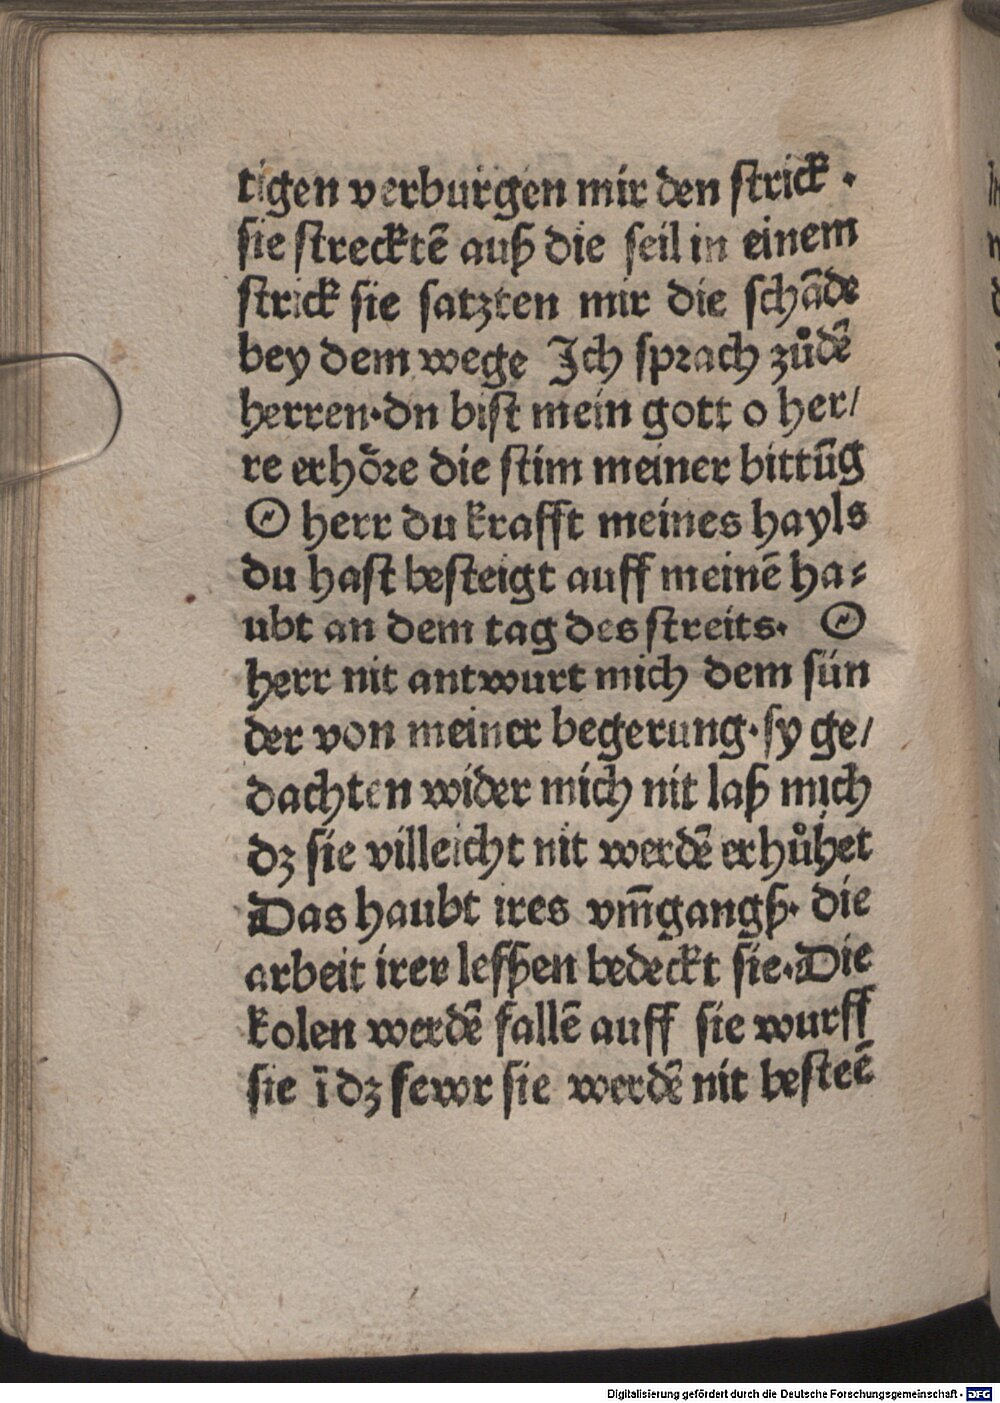 tigen verburgen mir den strick ·
sie strecktē auß die seil in einem
strick sie satzten mir die schāde
bey dem wege Jch sprach zůdē
herren·dn bist mein gott o her/
re erhȫre die stim meiner bittūg
O herr du krafft meines hayls
du hast besteigt auff meinē ha⸗
ubt an dem tag des streits· O
herr nit antwurt mich dem sün
der von meiner begerung·sy ge/
dachten wider mich nit laß mich
dz sie villeicht nit werdē erhůhet
Das haubt ires vm̄gangß· die
arbeit irer lefßen bedeckt sie·Die
kolen werdē fallē auff sie wurff
sie ī dz fewr sie werdē nit besteē
Digitalisierung gefördert durch die Deutsche Forschungsgemeinschaft - DFG